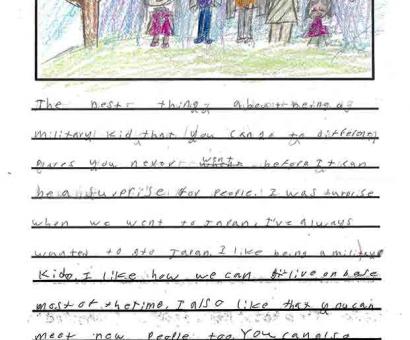 The best thing about being a
military kid that you can go to different
places you never went before. It can
be a surprise for people. I was surprise
when we went to Japan. I've always
wanted to go to Japan. I like being a military
Kid. I like how we can live on base
most of the time. I also like that you can
meet new people too. You can also